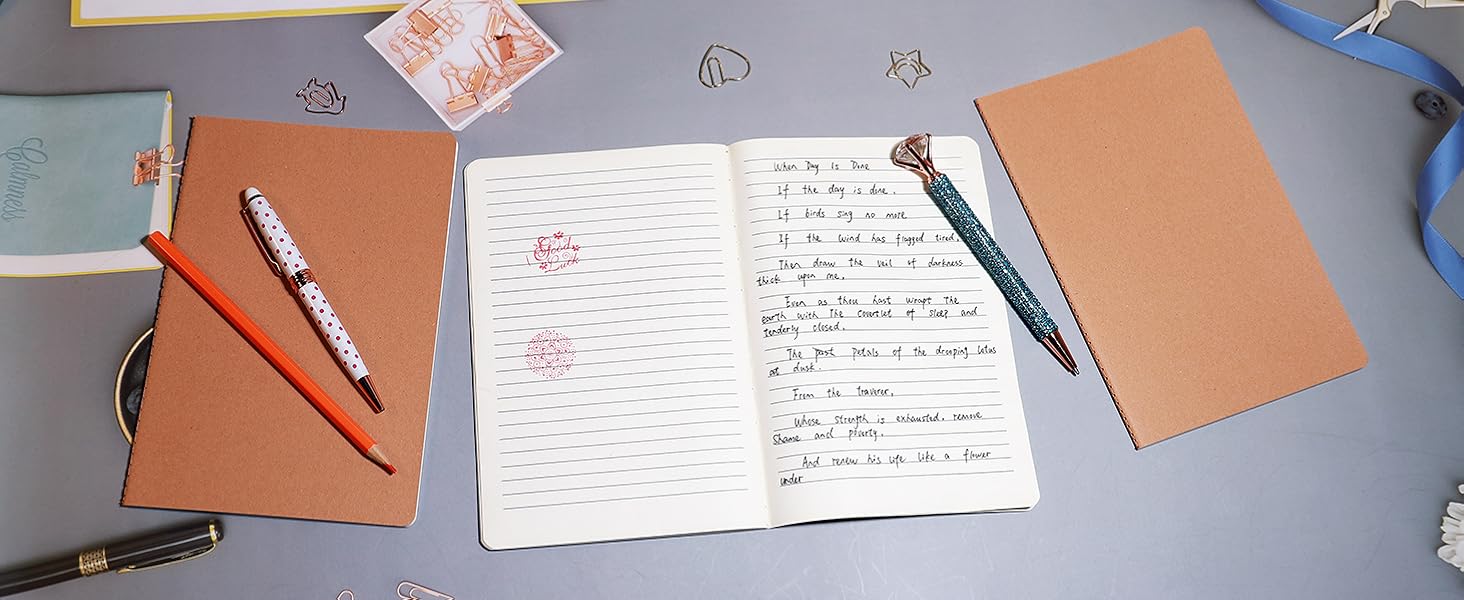 Calmness
Good
Luck
When Day Is Done
If the day is done.
If birds sing no more
If the wind has flagged tired.
Then draw the veil of darkness
thick upon me.
Even as thou hast wrapt the
earth with The coverlet of sleep and
tenderly closed.
The past petals of the drooping lotus
at dusk.
From the traverer.
Whose strength is exhausted. remove
Shame and poverty.
And renew his life like a flower
under